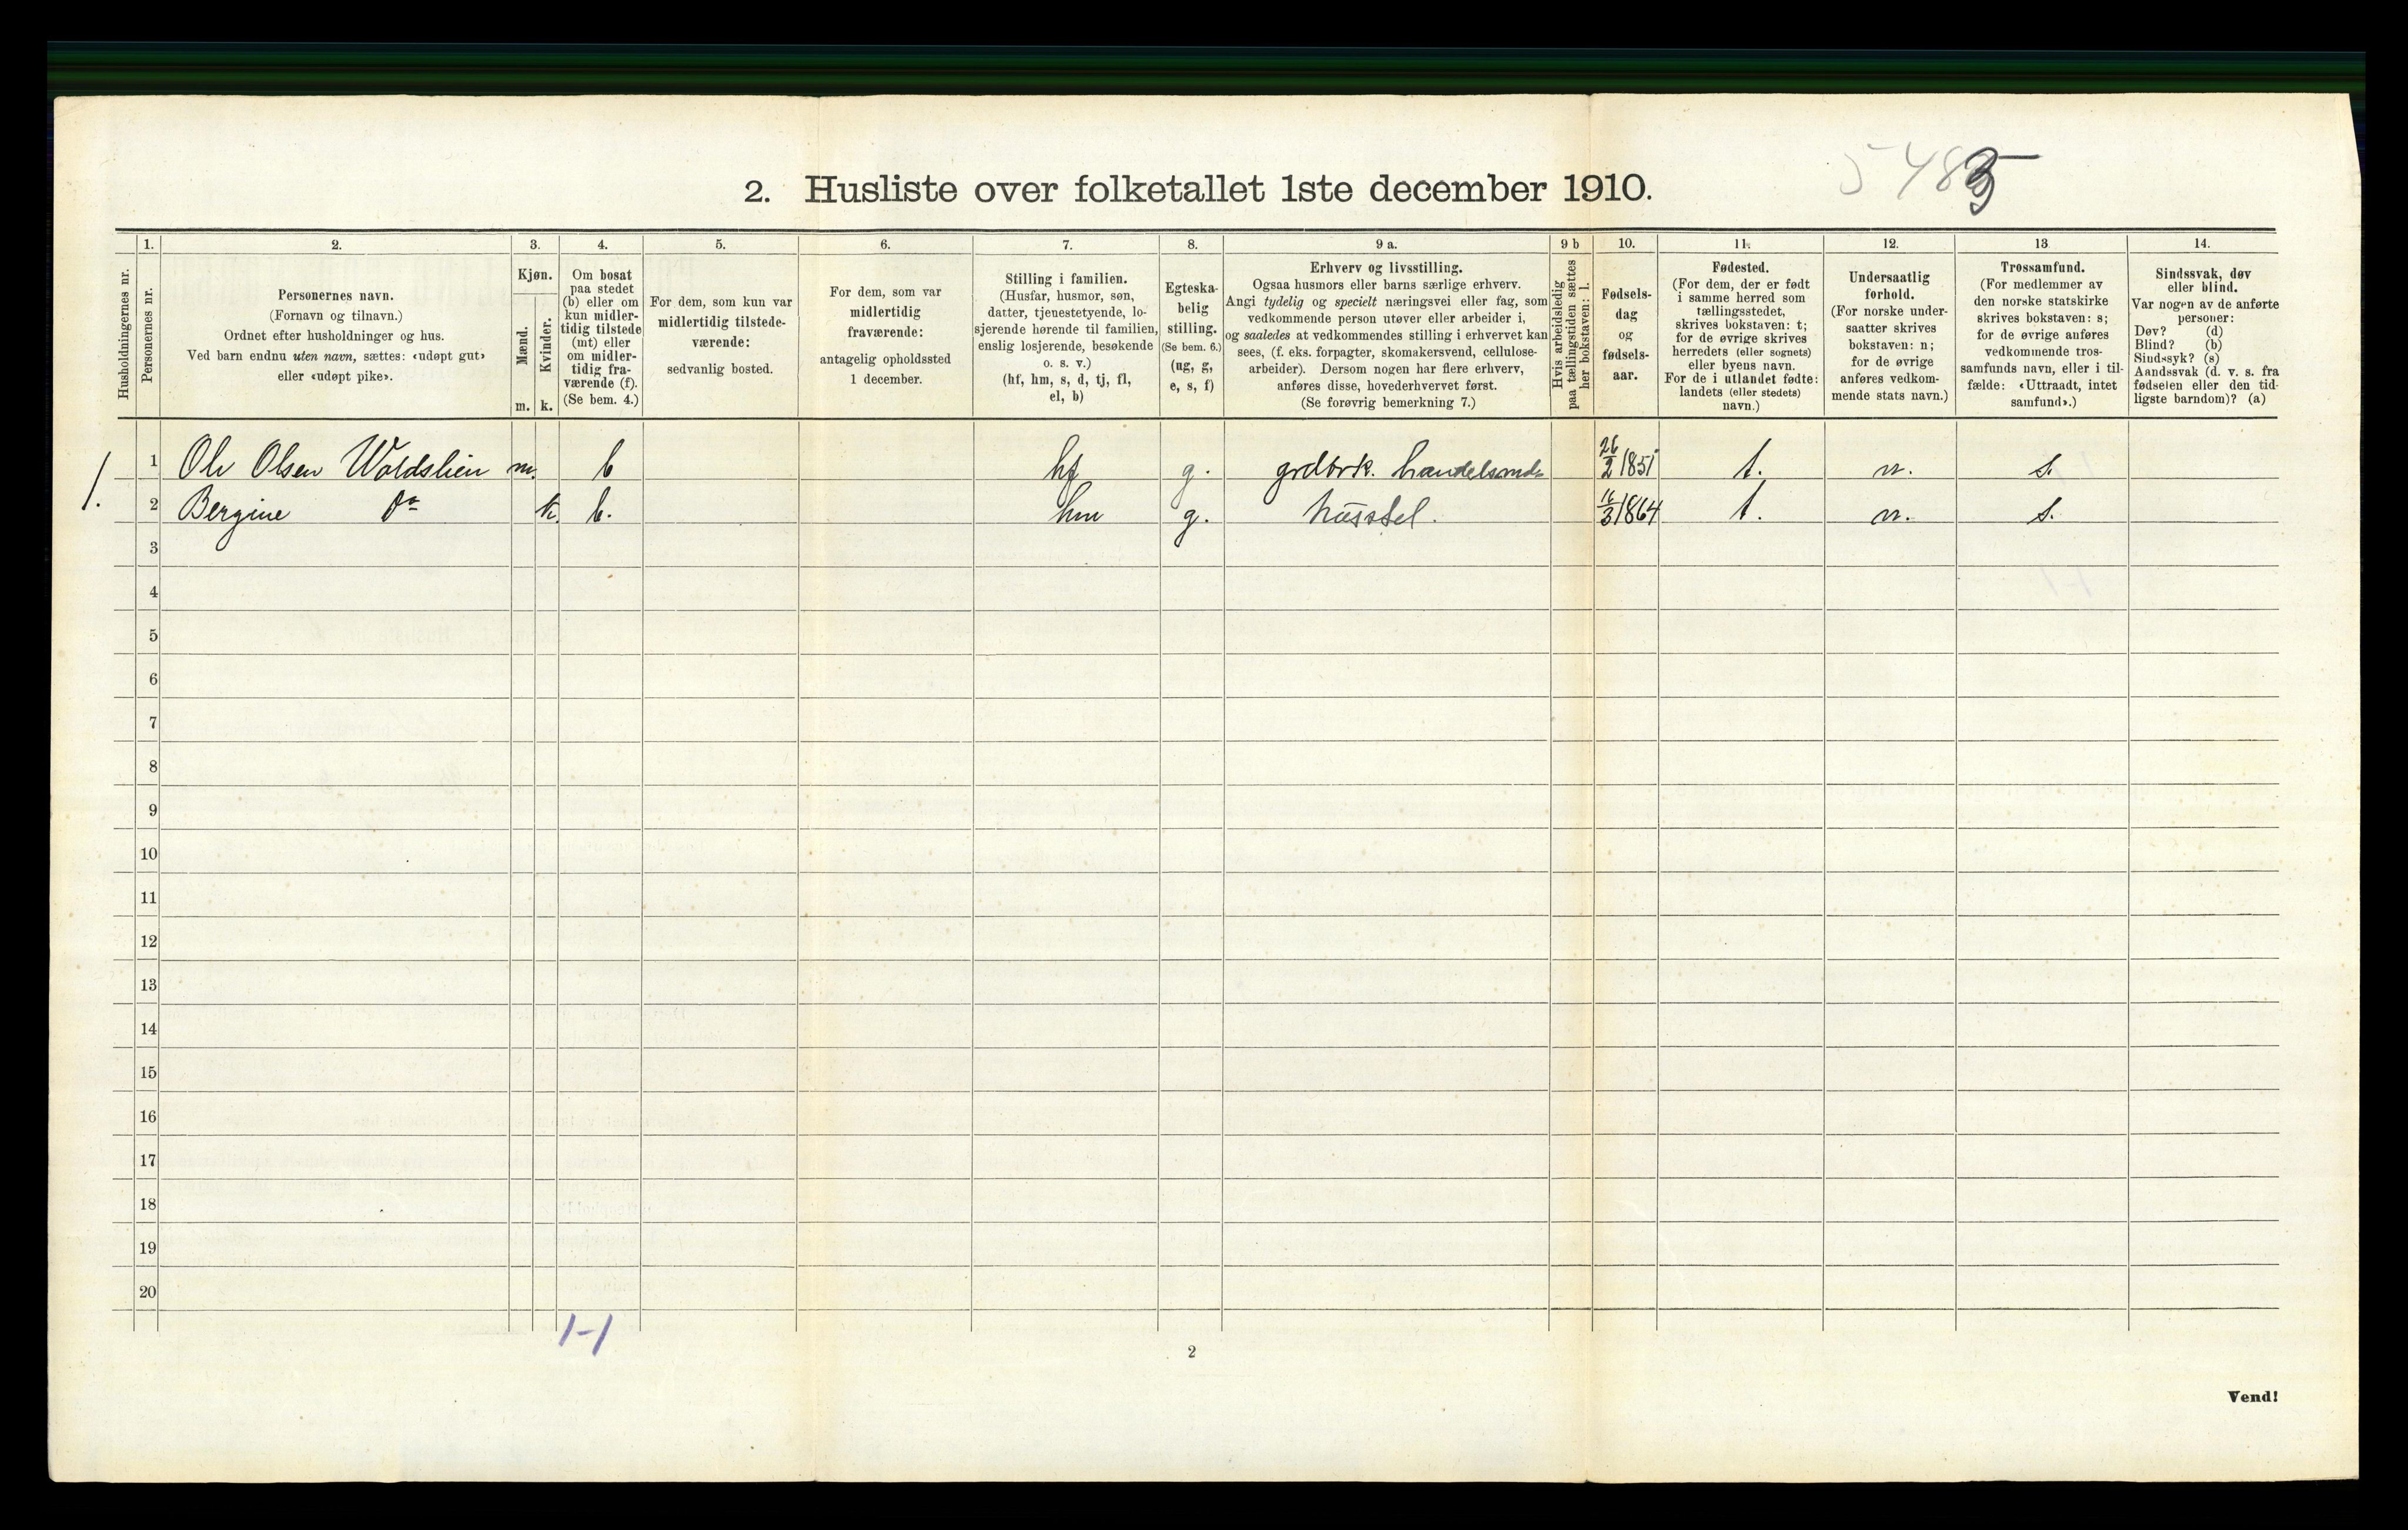 2. Husliste over folketallet 1ste december 1910.
548
Husholdningernes nr.
1.
Personernes nr.
2.
Personernes navn.
(Fornavn og tilnavn.)
Ordnet efter husholdninger og hus.
Ved barn endnu uten navn, sættes: «udøpt gut»
eller «udøpt pike».
3.
Kjøn.
Mænd.
Kvinder.
m. k.
4.
Om bosat
paa stedet
(b) eller om
kun midler-
tidig tilstede
(mt) eller
om midler-
tidig fra-
værende (f).
(Se bem. 4.)
5.
For dem, som kun var
midlertidig tilstede-
værende:
sedvanlig bosted.
6.
For dem, som var
midlertidig
fraværende:
antagelig opholdssted
1 december.
7.
Stilling i familien.
(Husfar, husmor, søn,
datter, tjenestetyende, lo-
sjerende hørende til familien,
enslig losjerende, besøkende
o. s. v.)
(hf, hm, s, d, tj, fl,
el, b)
8.
Egteska-
belig
stilling.
(Se bem. 6.)
(ug, g,
e, s, f)
9 a.
Erhverv og livsstilling.
Ogsaa husmors eller barns særlige erhverv.
Angi tydelig og specielt næringsvei eller fag, som
vedkommende person utøver eller arbeider i,
og saaledes at vedkommendes stilling i erhvervet kan
sees, (f. eks. forpagter, skomakersvend, cellulose-
arbeider). Dersom nogen har flere erhverv,
anføres disse, hovederhvervet først.
(Se forøvrig bemerkning 7.)
9 b
Hvis arbeidsledig
paa tællingstiden sættes
her bokstaven: l.
10.
Fødsels-
dag
og
fødsels-
aar.
11.
Fødested.
(For dem, der er født
i samme herred som
tællingsstedet,
skrives bokstaven: t;
for de øvrige skrives
herredets (eller sognets)
eller byens navn.
For de i utlandet fødte:
landets (eller stedets)
navn.)
12.
Undersaatlig
forhold.
(For norske under-
saatter skrives
bokstaven: n;
for de øvrige
anføres vedkom-
mende stats navn.)
13
Trossamfund.
(For medlemmer av
den norske statskirke
skrives bokstaven: s;
for de øvrige anføres
vedkommende tros-
samfunds navn, eller i til-
fælde: «Uttraadt, intet
samfund».)
14.
Sindssvak, døv
eller blind.
Var nogen av de anførte
personer:
Døv? (d)
Blind? (b)
Sindssyk? (s)
Aandssvak (d. v. s. fra
fødselen eller den tid-
ligste barndom)? (a)
1 Ole Olsen Woldslien m. b hf g. grdbrk. handelsmd. 26/2 1851 t. n. s.
1. 2 Bergine do k. b. hm g. husstel. 16/3 1864 t. n. s.
3
4
5
6
7
8
9
10
11
12
13
14
15
16
17
18
19
20
1-1
2
Vend!